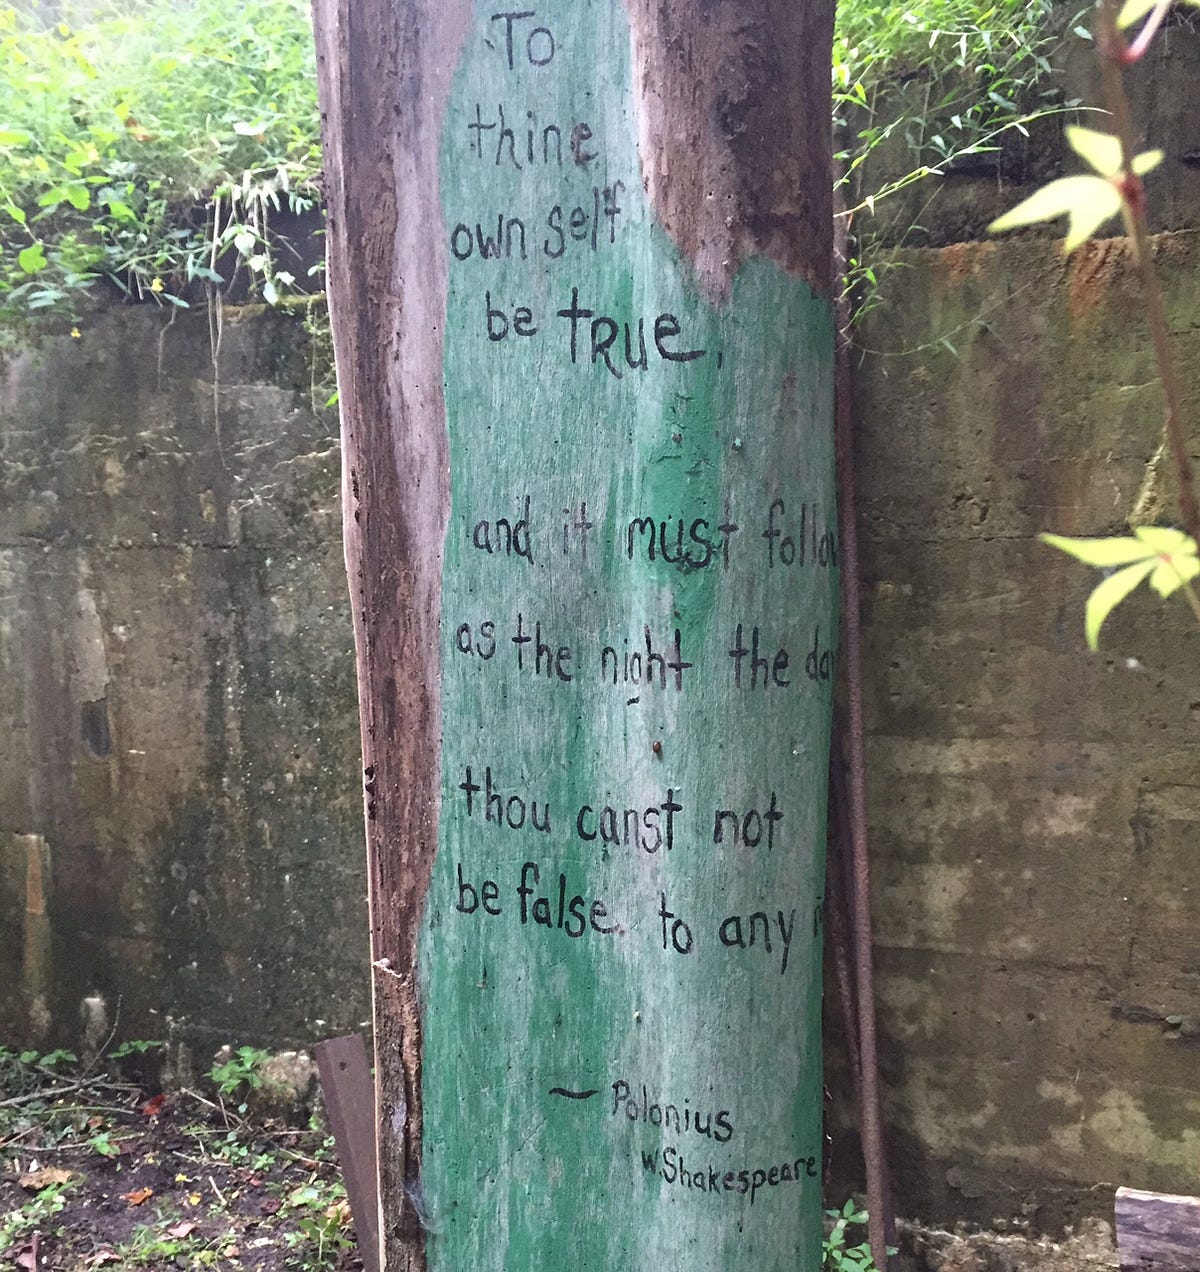 To
thine
own self
be tRUe,
and it must follow
as the night the day
thou canst not
be false to any
— Polonius
W. Shakespeare